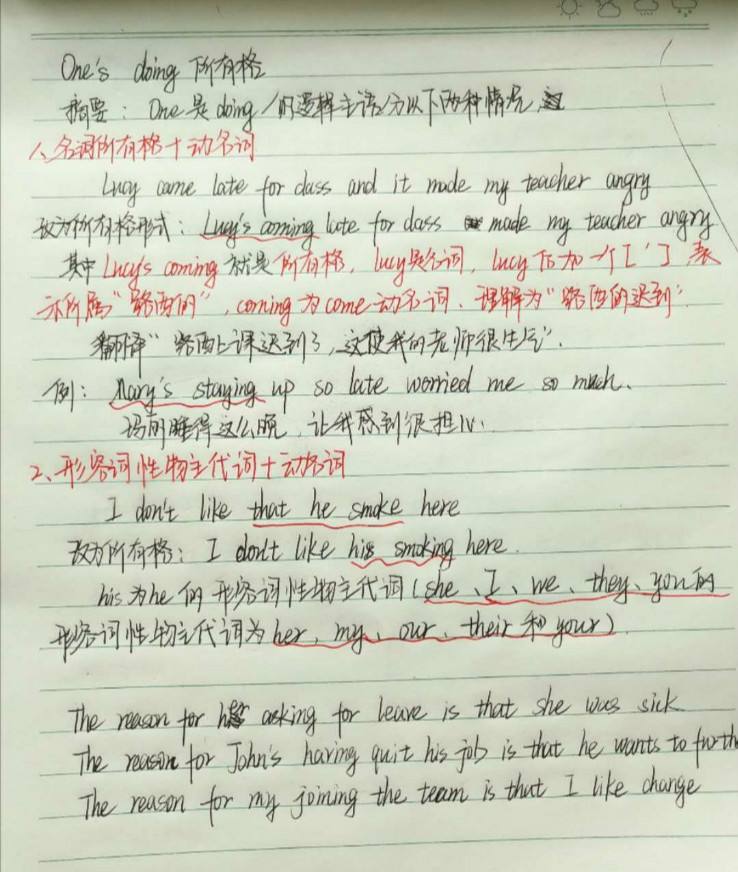 One's doing 所有格
摘要：One是doing的逻辑主语,分以下两种情况,
1、名词所有格+动名词
Lucy came late for class and it made my teacher angry
改为所有格形式：Lucy's coming late for class made my teacher angry
其中Lucy's coming 就是所有格，lucy是名词，lucy后加一个[']表
示所属"露西的"，coming为come动名词、理解为"露西的迟到"
翻译"露西上课迟到了,这使我的老师很生气".
例：Mary's staying up so late worried me so much.
玛丽睡得这么晚，让我感到很担心.
2、形容词性物主代词+动名词
I don't like that he smoke here
改为所有格：I don't like his smoking here.
his为he的形容词性物主代词(she、I、we、they、you的
形容词性物主代词为her、my、our、their和your)
The reason for asking for leave is that she was sick
The reason for John's having quit his job is that he wants to furth
The reason for my joining the team is that I like change